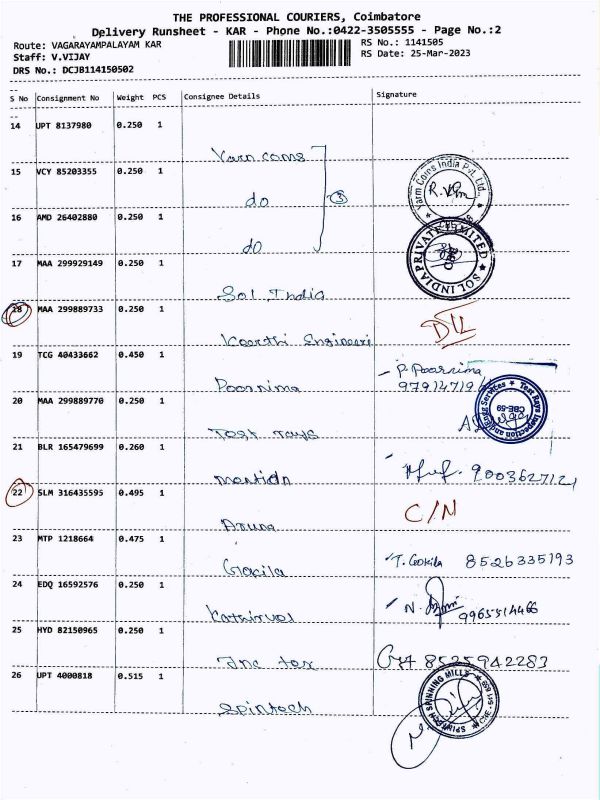 THE PROFESSIONAL COURIERS, Coimbatore
Delivery Runsheet - KAR - Phone No.:0422-3505555 - Page No.:2
Route: VAGARAYAMPALAYAM KAR
RS No.: 1141505
Staff: V.VIJAY
RS Date: 25-Mar-2023
DRS No.: DCJB114150502
S No Consignment No Weight PCS Consignee Details Signature
14 UPT 8137980 0.250 1
Yarn coms
15 VCY 85203355 0.250 1
do
3
Yarm Coms India Pvt. Ltd.,
16 AMD 26402880 0.250 1
do
17 MAA 299929149 0.250 1
Sol India
SOL INDIA PRIVATE LIMITED
18 MAA 299889733 0.250 1
Keerthi Engineeri
D/L
19 TCG 40433662 0.450 1
Poornima
P. Poornima
97914719
20 MAA 299889770 0.250 1
Test rays
Test Rays Inspection and Engg Services
CBE-59
21 BLR 165479699 0.260 1
9003627121
22 SLM 316435595 0.495 1
Aruna
C/N
23 MTP 1218664 0.475 1
Gokila
T. Gokila 8526335193
24 EDQ 16592576 0.250 1
Kathirvel
N.
9965514466
25 HYD 82150965 0.250 1
Inc tax
8525942283
26 UPT 4000818 0.515 1
Spintech
SPINTECH SPINNING MILLS